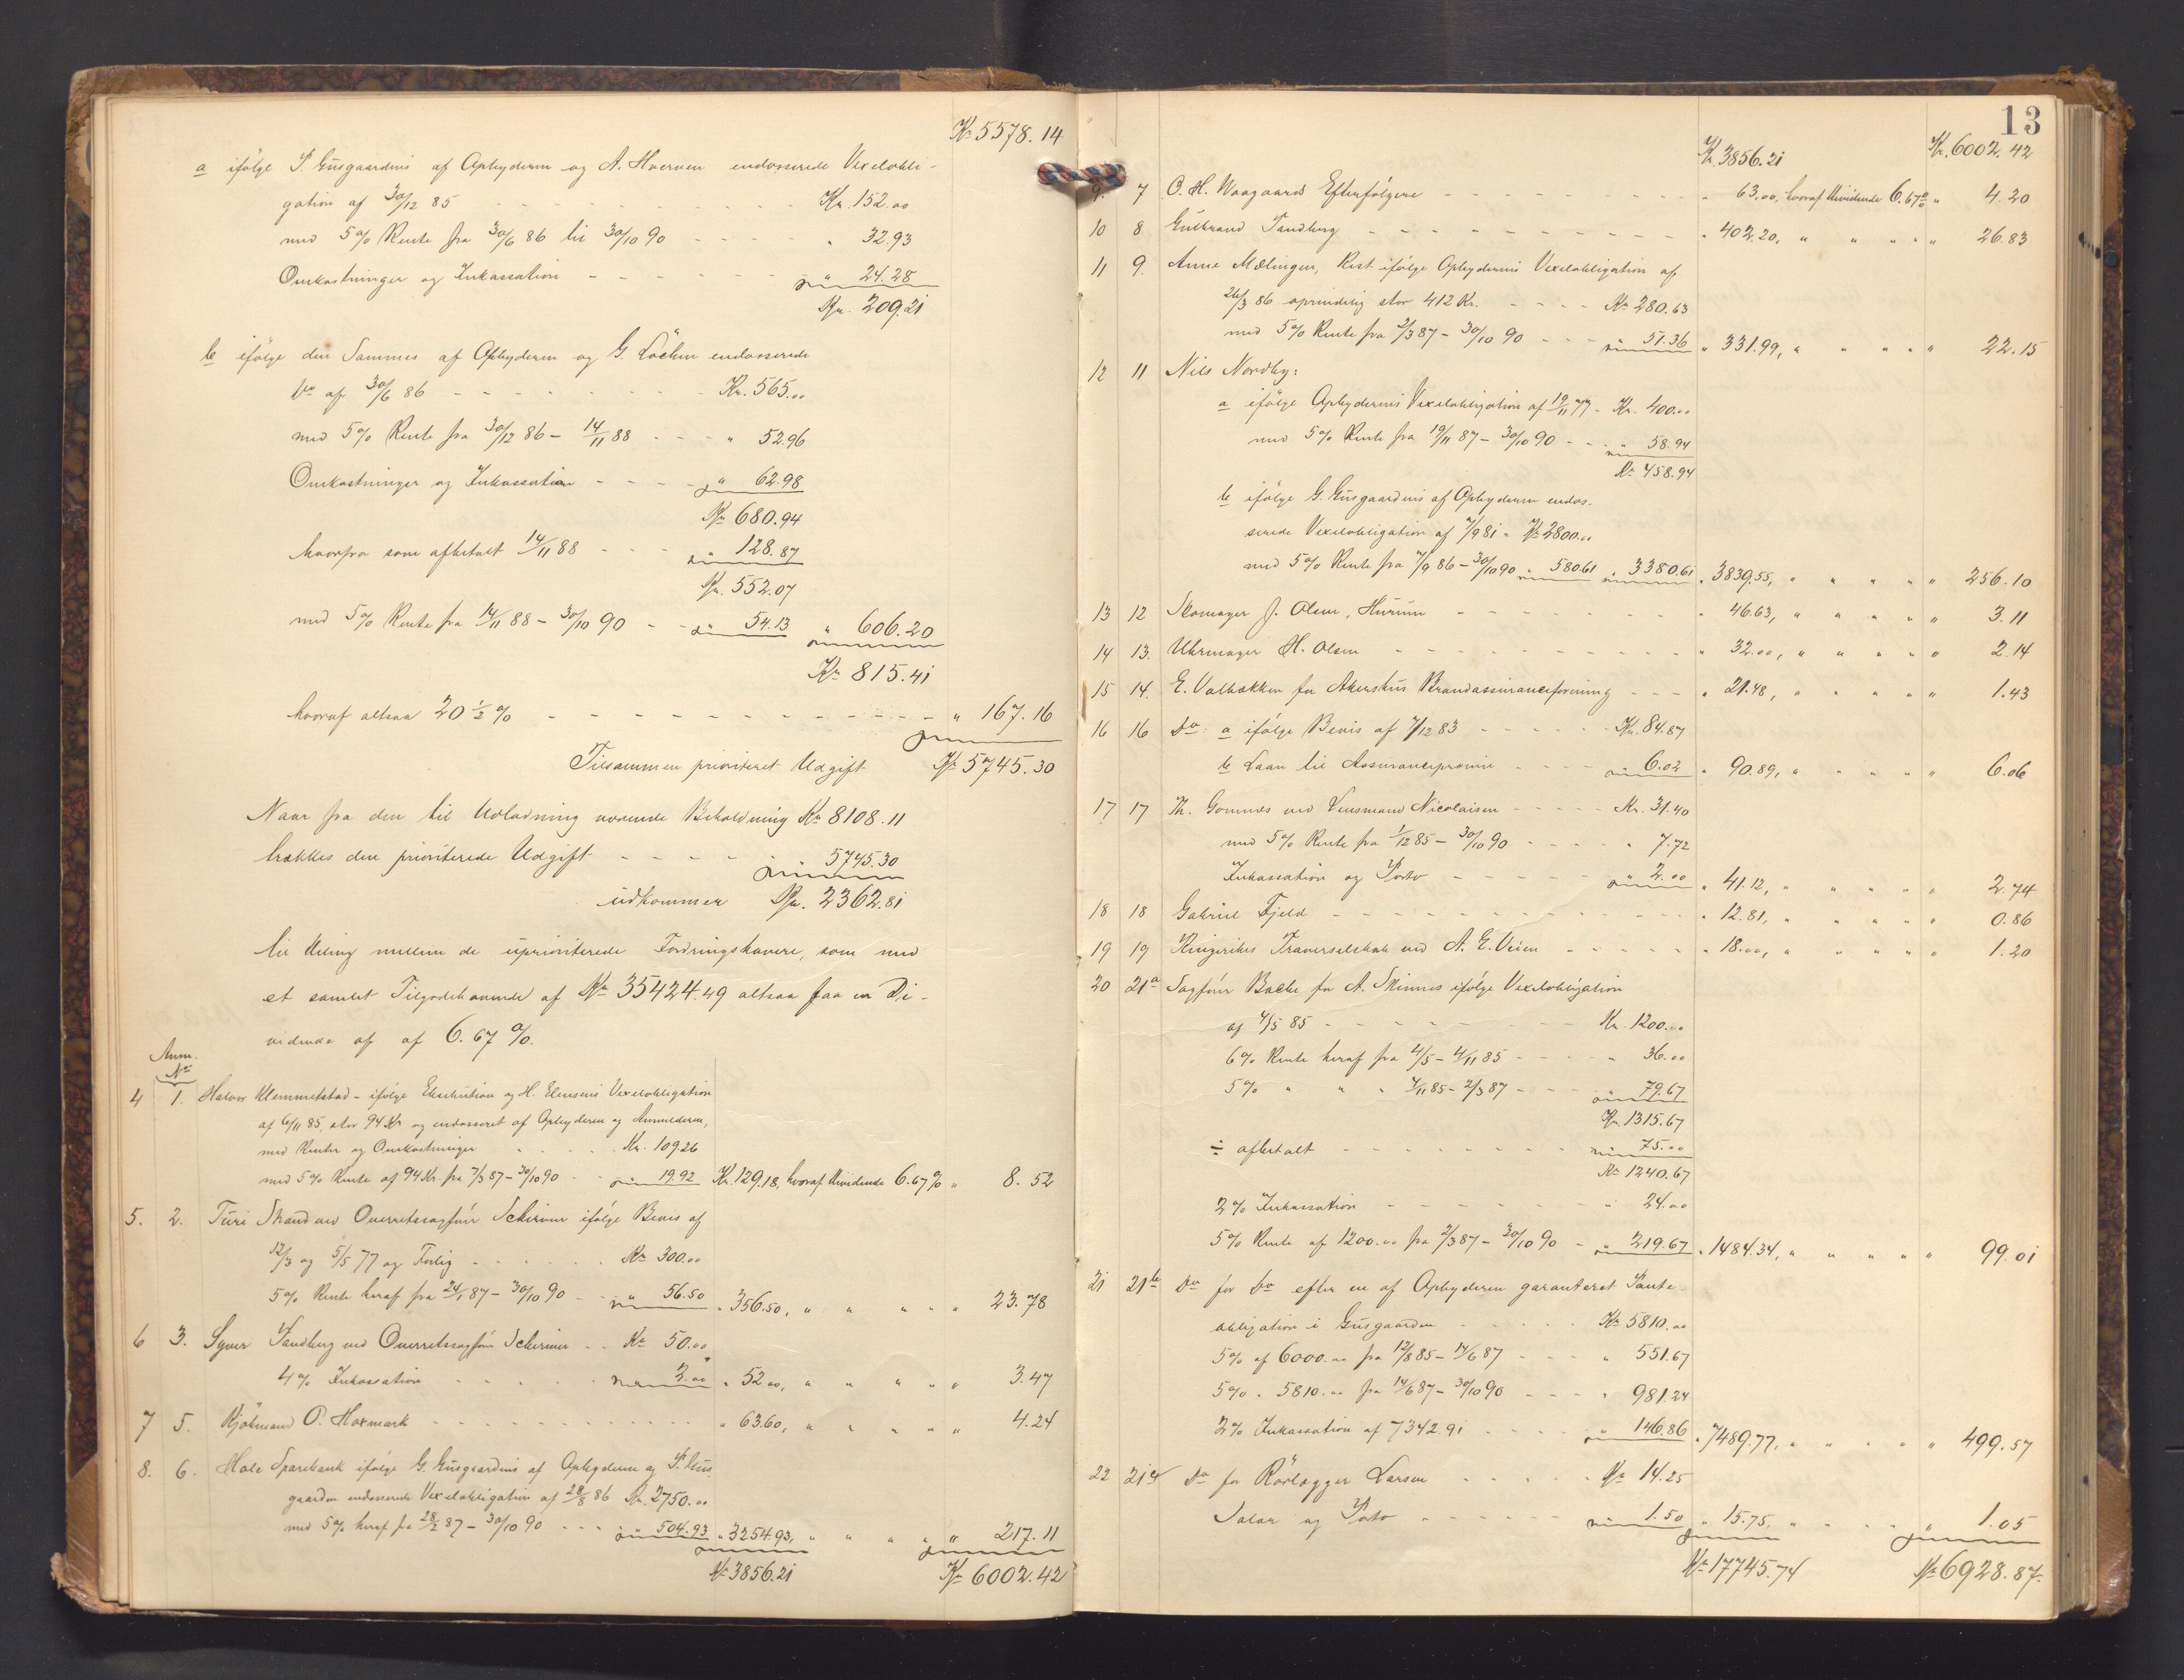 Kr 5578.14
a ifölge P. Gusgaardens af Ophyderen og A. Hverven endosserede Vexelobli-
gation af 30/12 85 - - - Kr. 152.00
med 5% Rente fra 30/6 86 til 30/10 90 - - - " 32.93
Omkostninger og Inkassation - - - " 24.28
Kr. 209.21
b ifölge den Sammes af Ophyderen og G. Löchen endosserede
Do af 30/6 86 - - - Kr. 565.00
med 5% Rente fra 30/12 86 - 14/11 88 - - - " 52.96
Omkostninger og Inkassation - - - " 62.98
Kr 680.94
hvorfra som afbetalt 14/11 88 - - - " 128.87
Kr. 552.07
med 5% Rente fra 14/11 88 - 30/10 90 - - " 54.13 " 606.20
Kr 815.41
hvoraf altsaa 20 1/2 % - - - " 167.16
Tilsammen prioriteret Udgift Kr 5745.30
Naar fra den til Udlodning værende Beholdning Kr 8108.11
trækkes den prioriterede Udgift - - - " 5745.30
udkommer Kr. 2362.81
til Deling mellem de uprioriterede Fordringshavere, som med
et samlet Tilgodehavende af Kr 35424.49 altsaa faa en Di-
vidende af af 6.67 %.
Anm.
No
4 1. Halvor Klemmetstad - ifölge Exekution og H. Elensens Vexelobligation
af 6/11 85, stor 94 Kr og endosseret af Ophyderen og Anmelderen,
med Renter og Omkostninger - - Kr. 109.26
med 5% Rente af 94 Kr. fra 7/3 87 - 30/10 90 - - " 19.92 Kr. 129.18, hvoraf Dividende 6.67% " 8.52
5. 2. Turi Strand ved Overretssagförer Schirmer ifölge Bevis af
12/3 og 5/5 77 og Forlig - - - Kr 300.00
5% Rente heraf fra 24/1 87 - 30/10 90 - - " 56.50 " 356.50, " " " " " 23.78
6 3. Syver Sandberg ved Overretssagförer Schirmer - - Kr 50.00
4% Inkassation - - - " 2.00 " 52.00, " " " " " 3.47
7 5. Kjöbmand O. Hoxmark - - - " 63.60, " " " " " 4.24
8. 6. Hole Sparebank ifölge G. Gusgaardens af Ophyderen og P. Gus-
gaarden endosserede Vexelobligation af 28/8 86 Kr. 2750.00
med 5% heraf fra 28/2 87 - 30/10 90 - - - " 504.93 " 3254.93, " " " " " 217.11
Kr 3856.21 Kr 6002.42
13
Kr. 3856.21 Kr. 6002.42
9. 7 O. H. Waagaards Efterfölgere - - - " 63.00, hvoraf Dividende 6.67% " 4.20
10 8 Gulbrand Sandberg - - - " 402.20, " " " " " 26.83
11 9. Anne Mælingen, Rest ifölge Ophyderens Vexelobligation af
26/3 86 oprindelig stor 412 Kr. - - - Kr 280.63
med 5% Rente fra 2/3 87 - 30/10 90 - - - " 51.36 " 331.99, " " " " " 22.15
12 11 Nils Nordby:
a ifölge Ophyderens Vexelobligation af 19/11 77 - Kr. 400.00
med 5% Rente fra 19/11 87 - 30/10 90 - - - " 58.94
Kr 458.94
b ifölge G. Gusgaardens af Ophyderen endos-
serede Vexelobligation af 7/9 81 - Kr 2800.00
med 5% Rente fra 7/9 86 - 30/10 90 " 580.61 " 3380.61 " 3839.55, " " " " " 256.10
13 12 Skomager J. Olsen, Hurum - - - " 46.63, " " " " " 3.11
14 13. Uhrmager H. Olsen - - - " 32.00, " " " " " 2.14
15 14. E. Valbækken for Akershus Brandassuranceforening - - - " 21.48, " " " " " 1.43
16 16 Do: a ifölge Bevis af 7/12 83 - - - Kr. 84.87
b Laan til Assurancepræmie - - - " 6.02 " 90.89, " " " " " 6.06
17 17 Th. Gomnæs ved Lensmand Nicolaisen - - - Kr. 31.40
med 5% Rente fra 1/12 85 - 30/10 90 - - - " 7.72
Inkassation og Porto - - - " 2.00 " 41.12, " " " " " 2.74
18 18 Gabriel Fjeld - - - " 12.81, " " " " " 0.86
19 19 Ringerikes Traverselskab ved A. E. Veien - - - " 18.00, " " " " " 1.20
20 21a Sagförer Bache for A. Skinnes ifölge Vexelobligation
af 4/5 85 - - - Kr. 1200.00
6% Rente heraf fra 4/5 - 4/11 85 - - - " 36.00
5% " " " 4/11 85 - 2/3 87 - - - " 79.67
Kr. 1315.67
÷ afbetalt - - - " 75.00
Kr 1240.67
2% Inkassation - - - " 24.00
5% Rente af 1200.00 fra 2/3 87 - 30/10 90 - " 219.67 " 1484.34, " " " " " 99.01
21 21b Do for Do efter en af Ophyderen garanteret Pante-
obligation i Gusgaarden - - - Kr 5810.00
5% af 6000.00 fra 12/8 85 - 14/6 87 - - - " 551.67
5% " 5810.00 fra 14/6 87 - 30/10 90 - - - " 981.24
2% Inkassation af 7342.91 - - - " 146.86 " 7489.77, " " " " " 499.57
22 21c Do for Rörlægger Larsen - - - Kr 14.25
Salær og Porto - - - " 1.50 " 15.75, " " " " " 1.05
Kr 17745.74 Kr 6928.87.